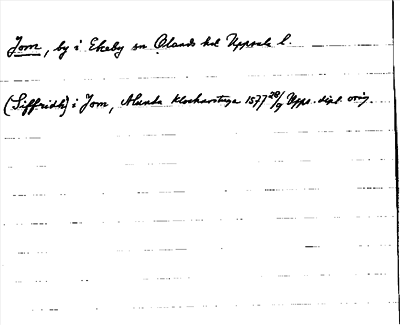 Jom, by i Ekeby sn Olands hd Uppsala l.
(Siffridh) i Jom, Alunda klockarstuga 1577 28/9 Upps. dipl. orig.